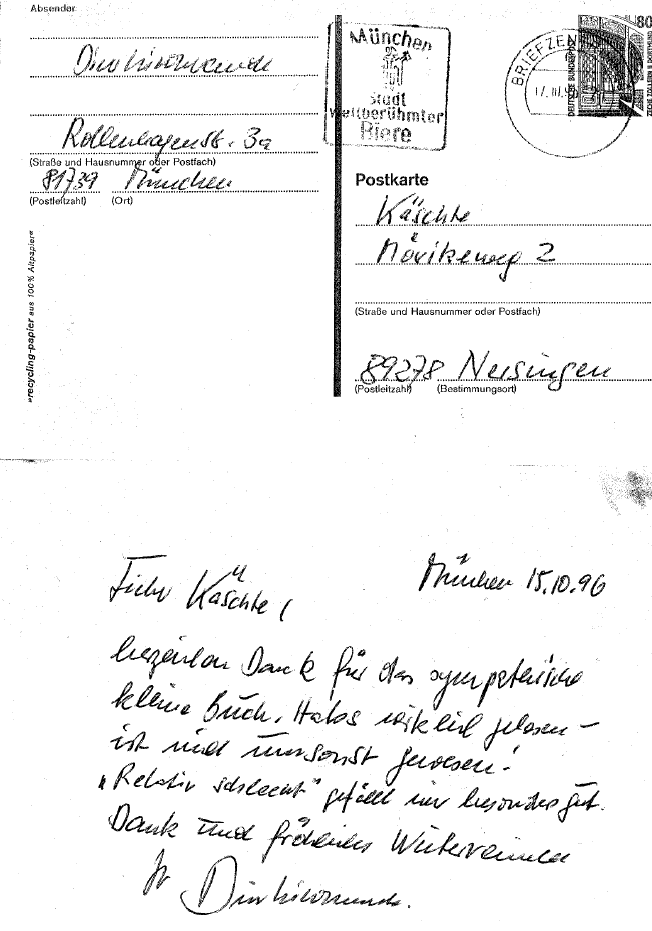 Absender
Rollenhagenstr. 3a
(Straße und Hausnummer oder Postfach)
81739 München
(Postleitzahl) (Ort)
»recycling-papier aus 100% Altpapier«
München
Stadt
weltberühmter
Biere
BRIEFZEN
80
DEUTSCHE BUNDESPOST
ZECHE ZOLLERN II DORTMUND
Postkarte
Käschte
Mörikeweg 2
(Straße und Hausnummer oder Postfach)
89278 Nersingen
(Postleitzahl) (Bestimmungsort)
München 15.10.96
Lieber Käschte,
herzlichen Dank für das sympathische
kleine Buch. Habs wirklich gelesen –
ist nicht umsonst gewesen!
„Relativ schlecht" gefällt mir besonders gut.
Dank und fröhliches
Ihr